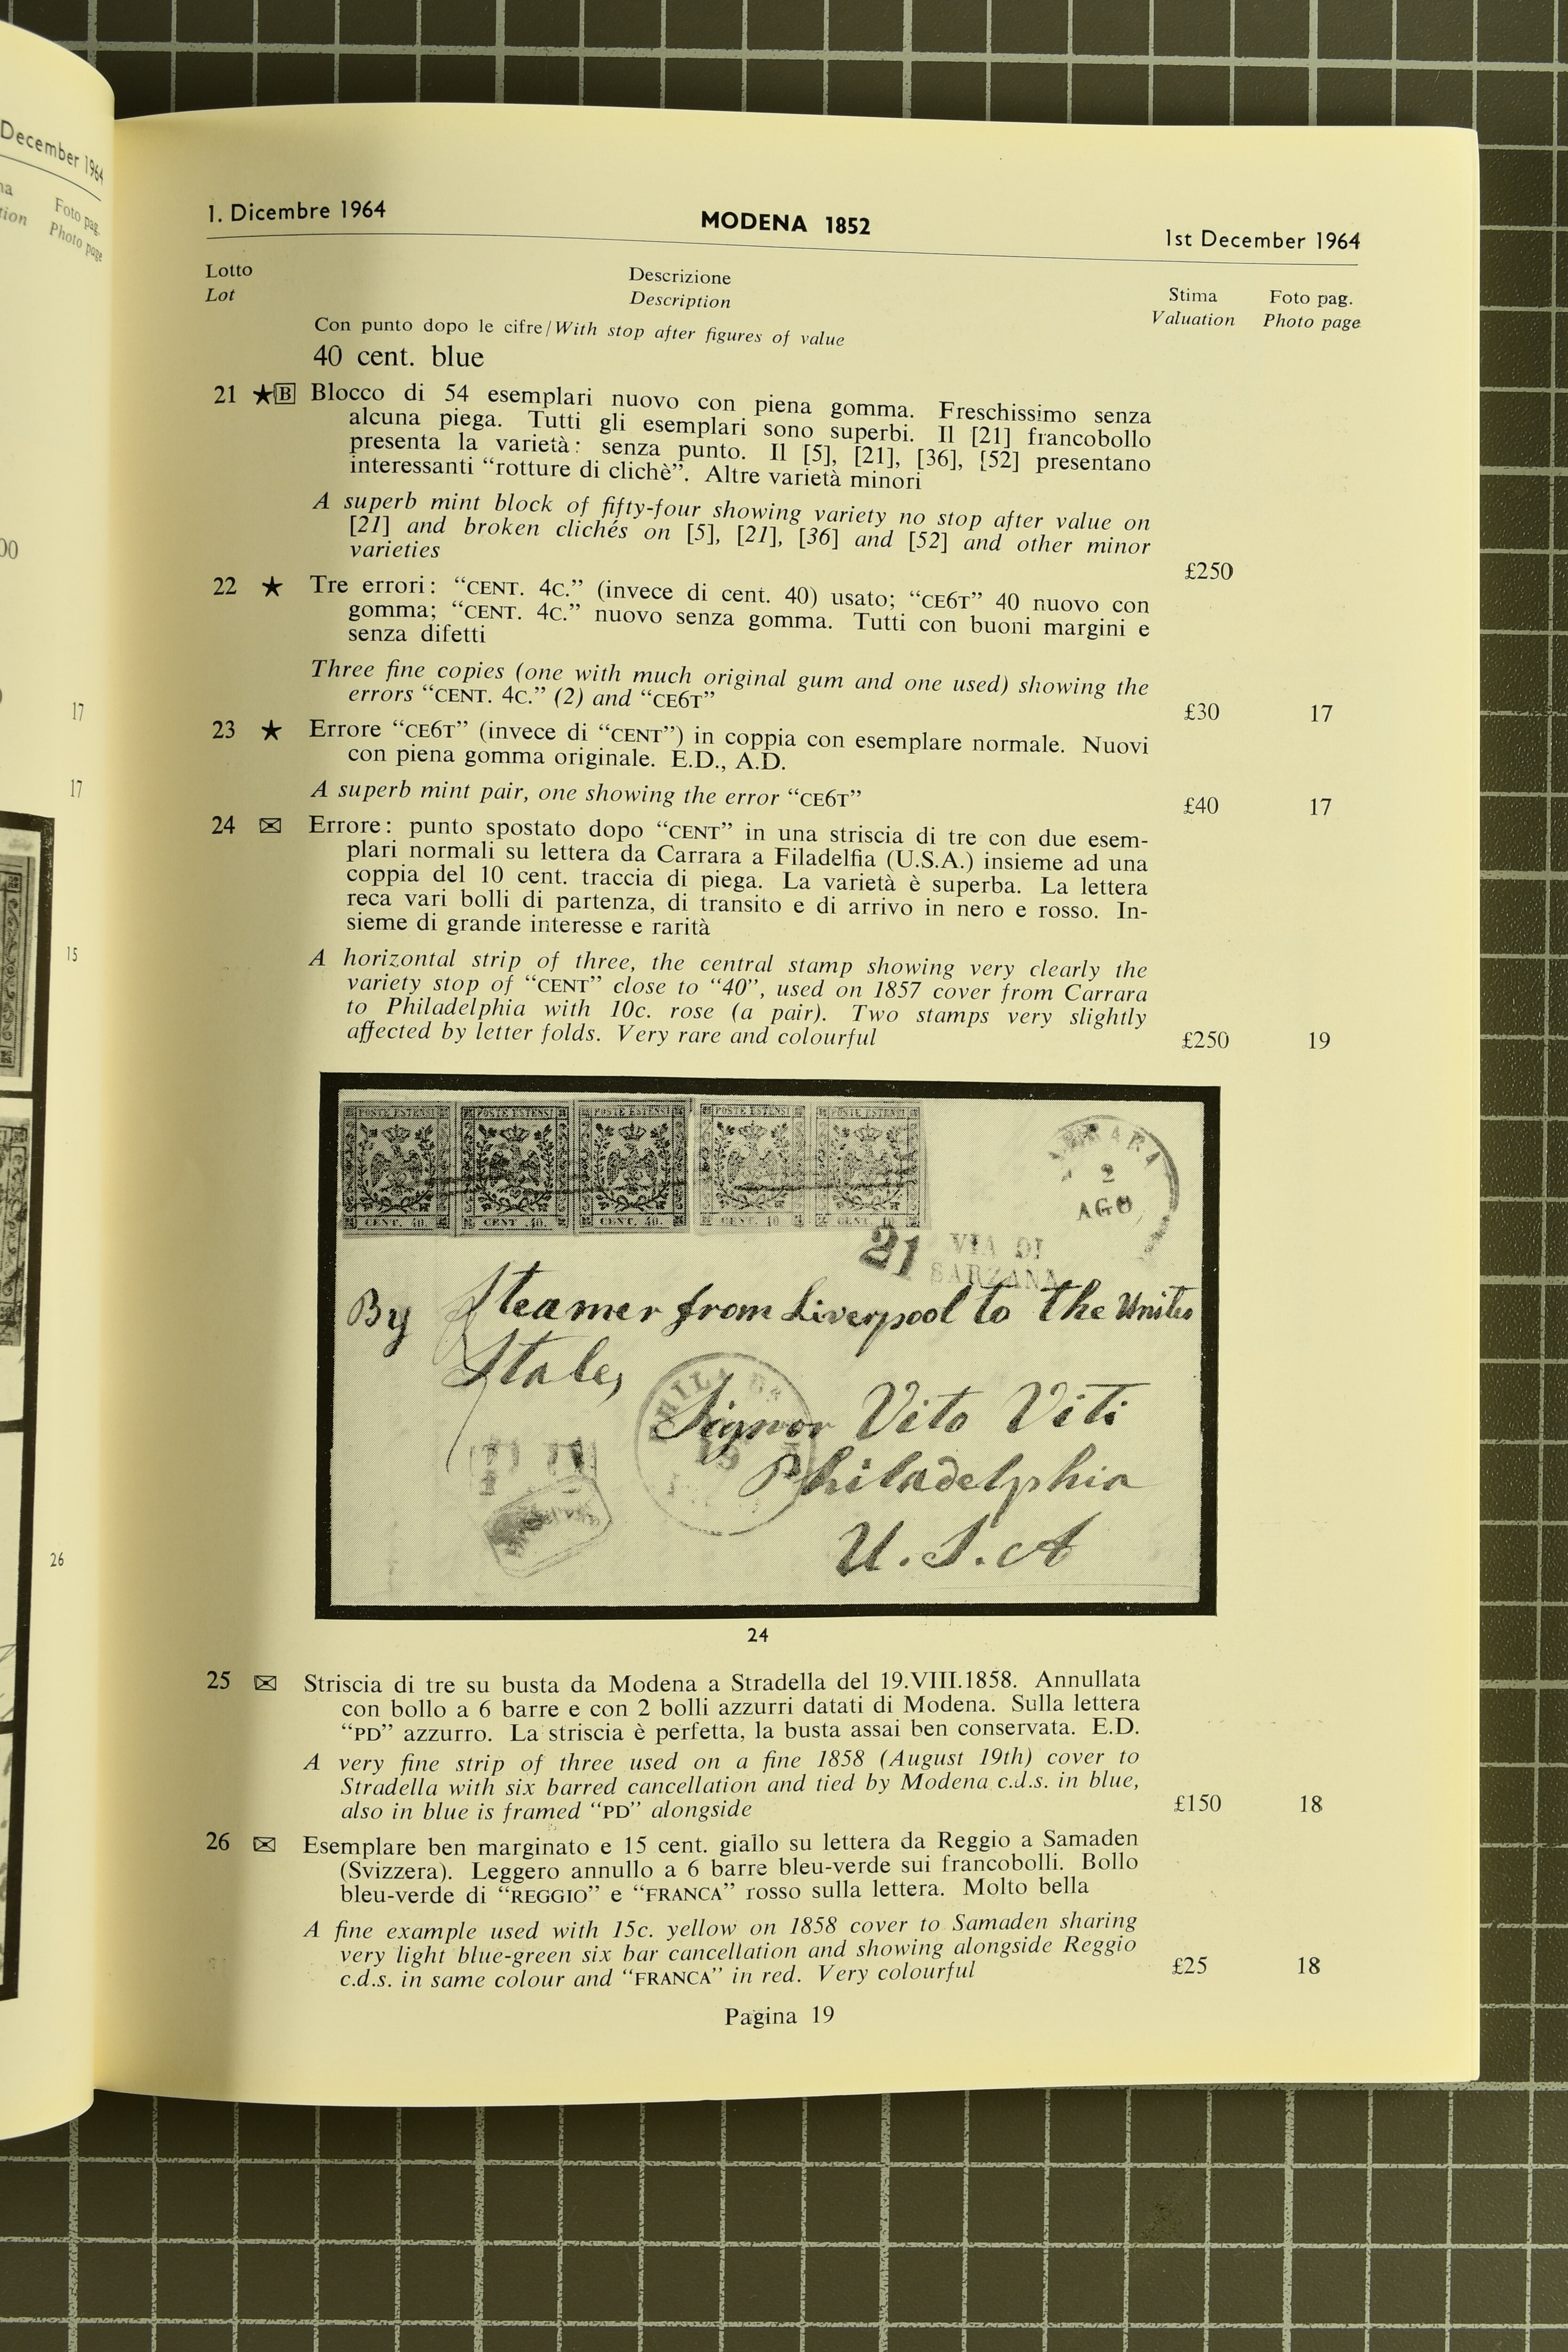 December 1964
Foto pag.
Photo page
17
17
15
26
1. Dicembre 1964
MODENA 1852
1st December 1964
Lotto
Descrizione
Stima
Foto pag.
Lot
Description
Valuation
Photo page
Con punto dopo le cifre/With stop after figures of value
40 cent. blue
21 ★ B Blocco di 54 esemplari nuovo con piena gomma. Freschissimo senza
alcuna piega. Tutti gli esemplari sono superbi. Il [21] francobollo
presenta la varietà: senza punto. Il [5], [21], [36], [52] presentano
interessanti “rotture di clichè”. Altre varietà minori
A superb mint block of fifty-four showing variety no stop after value on
[21] and broken clichés on [5], [21], [36] and [52] and other minor
varieties £250
22 ★ Tre errori: “CENT. 4C.” (invece di cent. 40) usato; “CE6T” 40 nuovo con
gomma; “CENT. 4C.” nuovo senza gomma. Tutti con buoni margini e
senza difetti
Three fine copies (one with much original gum and one used) showing the
errors “CENT. 4C.” (2) and “CE6T” £30 17
23 ★ Errore “CE6T” (invece di “CENT”) in coppia con esemplare normale. Nuovi
con piena gomma originale. E.D., A.D.
A superb mint pair, one showing the error “CE6T” £40 17
24 ✉ Errore: punto spostato dopo “CENT” in una striscia di tre con due esem-
plari normali su lettera da Carrara a Filadelfia (U.S.A.) insieme ad una
coppia del 10 cent. traccia di piega. La varietà è superba. La lettera
reca vari bolli di partenza, di transito e di arrivo in nero e rosso. In-
sieme di grande interesse e rarità
A horizontal strip of three, the central stamp showing very clearly the
variety stop of “CENT” close to “40”, used on 1857 cover from Carrara
to Philadelphia with 10c. rose (a pair). Two stamps very slightly
affected by letter folds. Very rare and colourful £250 19
POSTE ESTENSI POSTE ESTENSI POSTE ESTENSI POSTE ESTENSI POSTE ESTENSI
CENT. 40. CENT .40. CENT. 40. CENT. 10 CENT. 10
2
AGO
21
VIA DI
SARZANA
By Steamer from Liverpool to the United
States
Signor Vito Viti
Philadelphia
U.S.A
24
25 ✉ Striscia di tre su busta da Modena a Stradella del 19.VIII.1858. Annullata
con bollo a 6 barre e con 2 bolli azzurri datati di Modena. Sulla lettera
“PD” azzurro. La striscia è perfetta, la busta assai ben conservata. E.D.
A very fine strip of three used on a fine 1858 (August 19th) cover to
Stradella with six barred cancellation and tied by Modena c.d.s. in blue,
also in blue is framed “PD” alongside £150 18
26 ✉ Esemplare ben marginato e 15 cent. giallo su lettera da Reggio a Samaden
(Svizzera). Leggero annullo a 6 barre bleu-verde sui francobolli. Bollo
bleu-verde di “REGGIO” e “FRANCA” rosso sulla lettera. Molto bella
A fine example used with 15c. yellow on 1858 cover to Samaden sharing
very light blue-green six bar cancellation and showing alongside Reggio
c.d.s. in same colour and “FRANCA” in red. Very colourful £25 18
Pagina 19